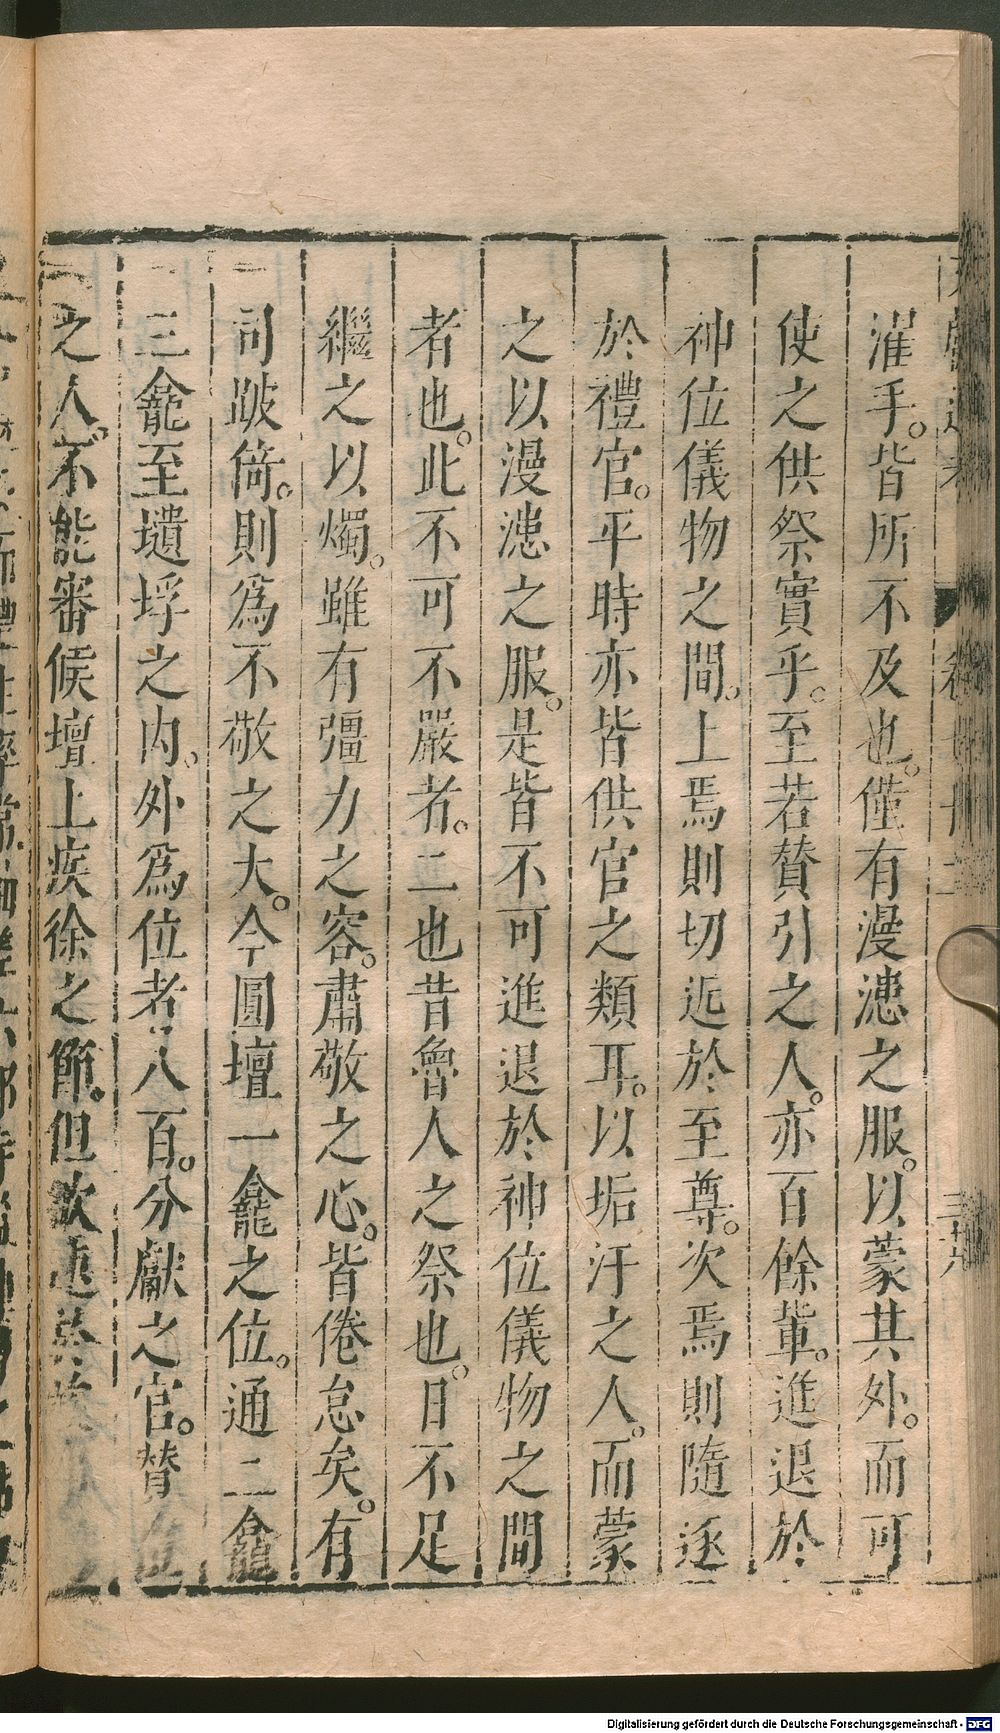 濯手。皆所不及也。僅有漫漶之服。以蒙其外。而可
使之供祭實乎。至若贊引之人。亦百餘輩。進退於
神位儀物之間。上焉則切近於至尊。次焉則隨逐
於禮官。平時亦皆供官之類耳。以垢汙之人。而蒙
之以漫漶之服。是皆不可進退於神位儀物之間
者也。此不可不嚴者。二也昔魯人之祭也。日不足
繼之以燭。雖有彊力之容。肅敬之心。皆倦怠矣。有
司跛倚。則爲不敬之大。今圓壇一龕之位。通二龕
三龕至壝垺之內。外爲位者八百。分獻之官。贊
之人。不能審候壇上疾徐之節。但欲
三十六
Digitalisierung gefördert durch die Deutsche Forschungsgemeinschaft - DFG